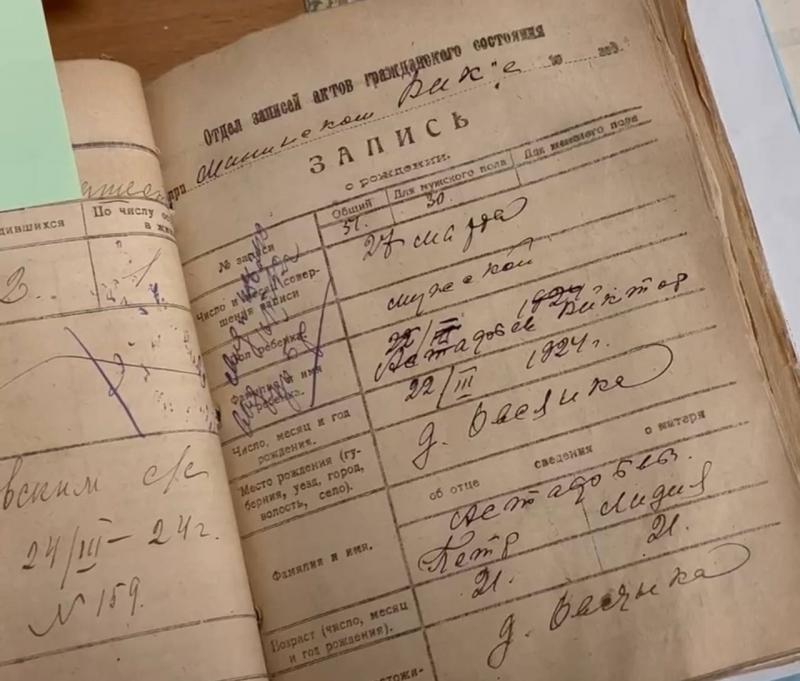 дившихся
По числу
в жи
2.
вским с/с
24/III – 24г.
N 159.
Отдел записей актов гражданского состояния
при Мининском Вик'е 19 год.
ЗАПИСЬ
о рождении.
Общий
Для мужского пола
Для женского пола
№ записи
51.
30.
Число и месяц совершения записи
27 марта
Пол ребенка.
мужской
Фамилия и имя ребенка.
22/III 1924
Астафьев Виктор
Число, месяц и год рождения.
22/III 1924г.
Место рождения (губерния, уезд, город, волость, село).
д. Овсянка
об отце
сведения
о матери
Фамилия и имя.
Астафьев
Петр
Лидия
Возраст (число, месяц и год рождения).
21.
21.
д. Овсянка